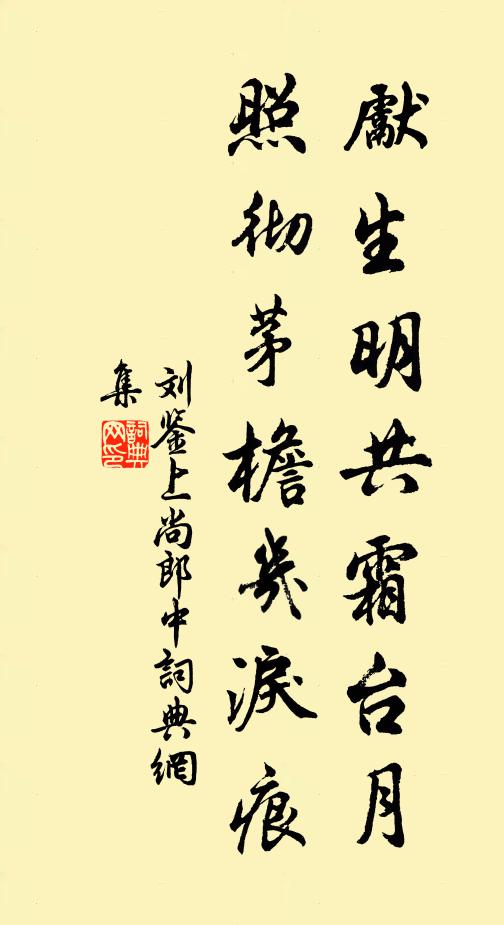 獻生明共霜台月
照彻茅檐幾淚痕
刘鉴上尚郎中詞典網
集
詞典網印